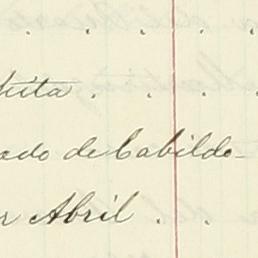 . . . .
. . .
ado de Cabildo-
r Abril . .